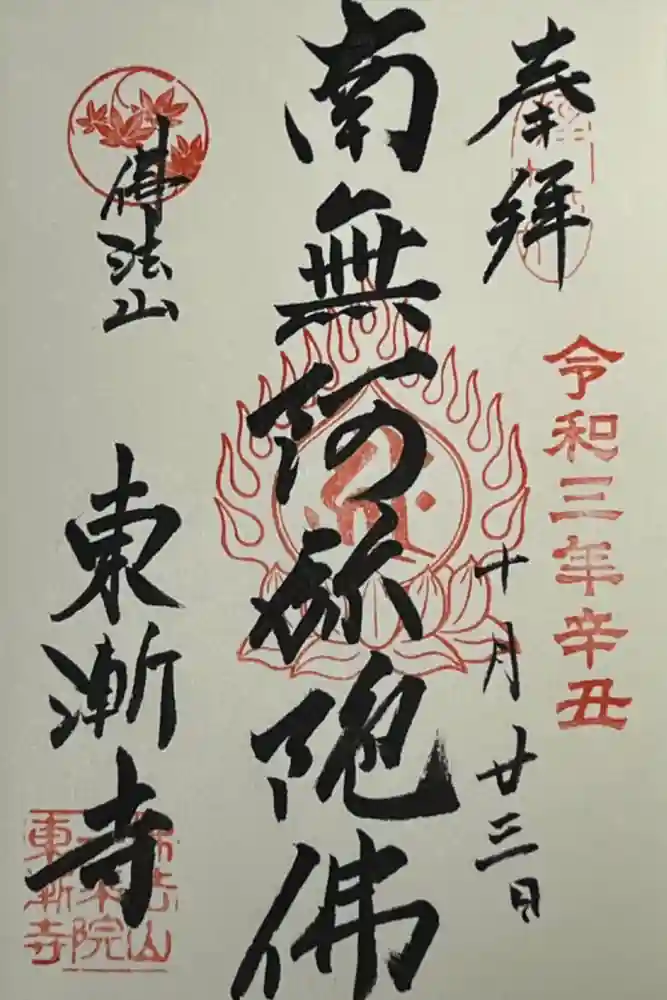 奉拝
令和三年辛丑
十月廿三日
南無阿弥陀佛
佛法山
東漸寺
東漸寺